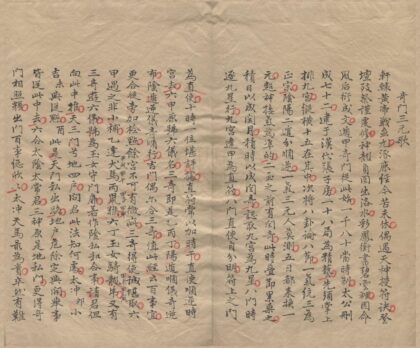 奇門三元歌
軒轅黃帝戰蚩尤涿鹿經今苦未休偶過天神授符訣登
壇致祭謹虔修神龍負圖出洛水彩鳳銜書碧雲裡因命
風后演成文遁甲奇門從此始一千八十當時制太公刪
成七十二逮于漢代張子房一十八局為精藝先須掌上
排九宮縱橫十五在其中次將八卦論八節一氣統三為
正宗陰陽二遁分順逆一氣三元人莫測五日都來換一
元超神接氣為準的二至之前有閏此時疊節
積日以成閏月積時成閏認取九宮為九星八門
逐九星行九宮逢甲為直符八門直使自分明符上之門
為直使十時一位堪憑據直符常以加時干直使順逆時
宮去六甲原號六儀三奇即是乙丙丁陽遁順儀奇逆
布陰遁逆儀奇順行吉門偶爾合三奇值此經云百事宜
更合從旁加檢點餘宮不可有微疵三奇得使誠堪取六
甲遇之非小補乙逢犬馬丙鼠猴六丁玉女騎龍虎又有
三奇遊六儀號為玉女守門扉若作陰私和合事請君但
向此中推天三門兮地四戶問君此法知何處太沖小
吉從魁此是天門私出路地戶除危定與開舉事
皆從此中去六合太陰太常君三神原是地私門更得奇
門相照耀出門百事總欣欣太沖天馬最為貴卒然有難